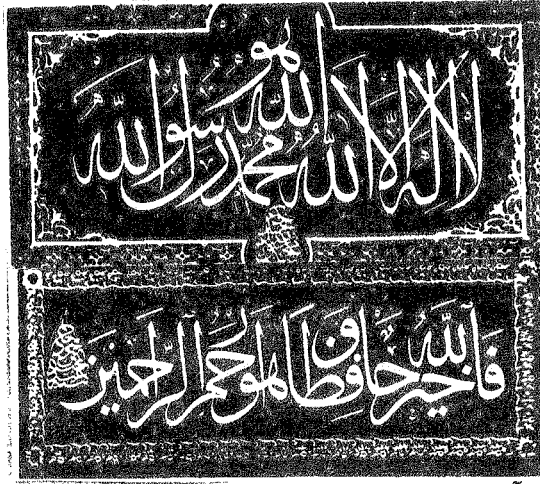 هو الله
لا اله الا الله محمد رسول الله
فالله خير حافظا وهو ارحم الراحمين